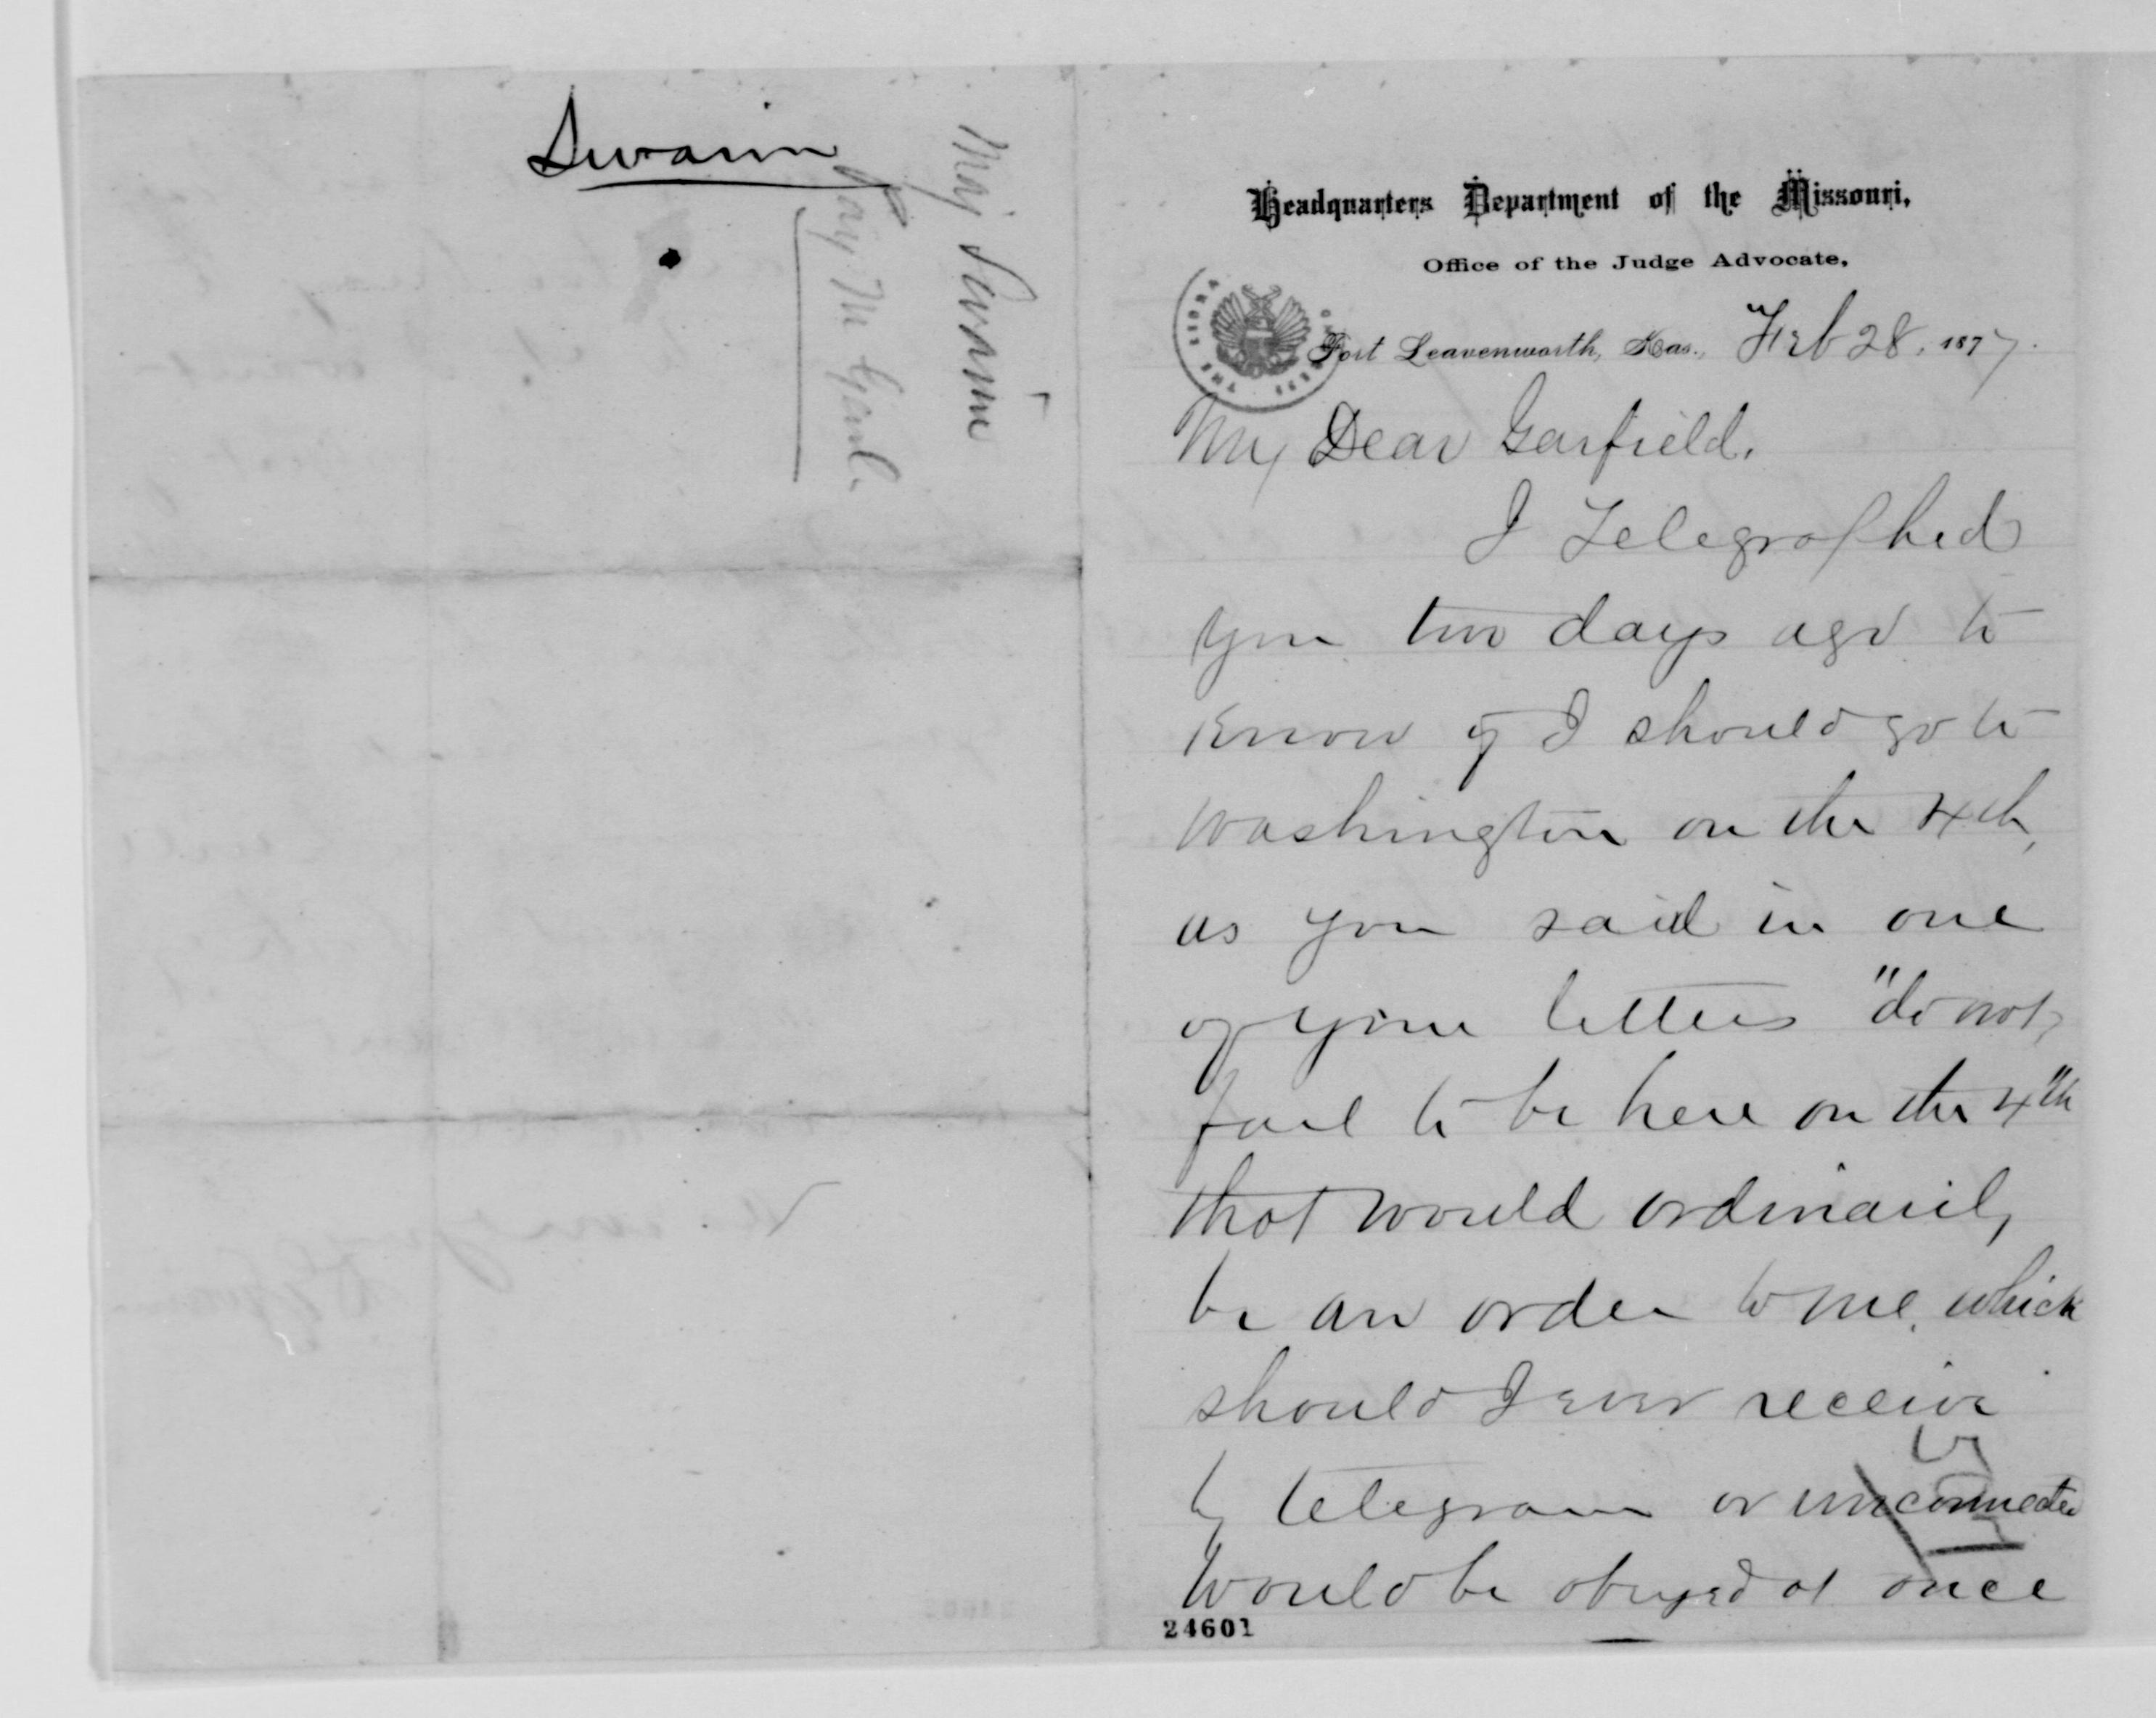 Swaim
Maj Swaim
Headquarters Department of the Missouri,
Office of the Judge Advocate,
Fort Leavenworth, Kas., Feb 28, 1877.
My Dear Garfield.
I Telegraphed
you two days ago to
know if I should go to
Washington on the 4th,
as you said in one
of your letters "do not
fail to be here on the 4th"
that would ordinarily
be an order to me, which
should I ever receive
by telegram or unconnected
would be obeyed at once
24601